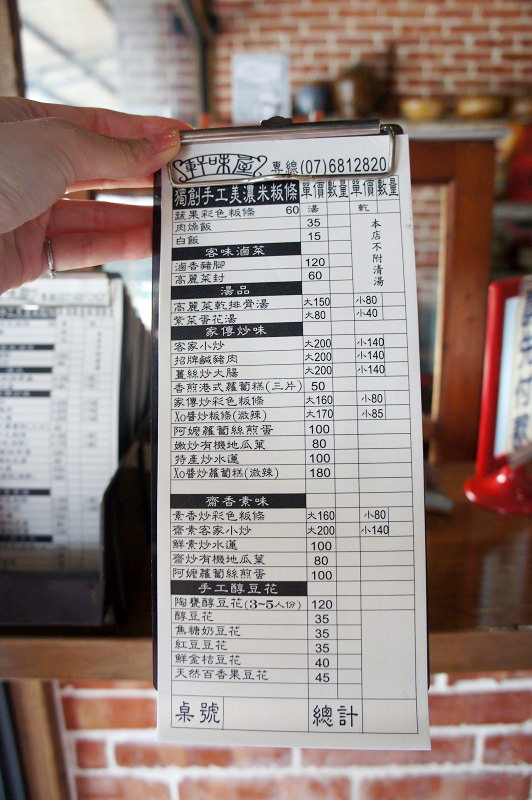 軒味屋 專線(07)6812820
獨創手工美濃米粄條 單價 數量 單價 數量
蔬果彩色粄條 60 湯 乾
肉燥飯 35
白飯 15
本店不附清湯
客味滷菜
滷香豬腳 120
高麗菜封 60
湯品
高麗菜乾排骨湯 大150 小80
紫菜蛋花湯 大80 小40
家傳炒味
客家小炒 大200 小140
招牌鹹豬肉 大200 小140
薑絲炒大腸 大200 小140
香煎港式蘿蔔糕(三片) 50
家傳炒彩色粄條 大160 小80
Xo醬炒粄條(微辣) 大170 小85
阿嬤蘿蔔絲煎蛋 100
嫩炒有機地瓜葉 80
特產炒水蓮 100
Xo醬炒蘿蔔糕(微辣) 180
齋香素味
素香炒彩色粄條 大160 小80
齋素客家小炒 大200 小140
鮮素炒水蓮 100
齋炒有機地瓜葉 80
阿嬤蘿蔔絲煎蛋 100
手工醇豆花
陶甕醇豆花(3~5人份) 120
醇豆花 35
焦糖奶豆花 35
紅豆豆花 35
鮮金桔豆花 40
天然百香果豆花 45
桌號 總計